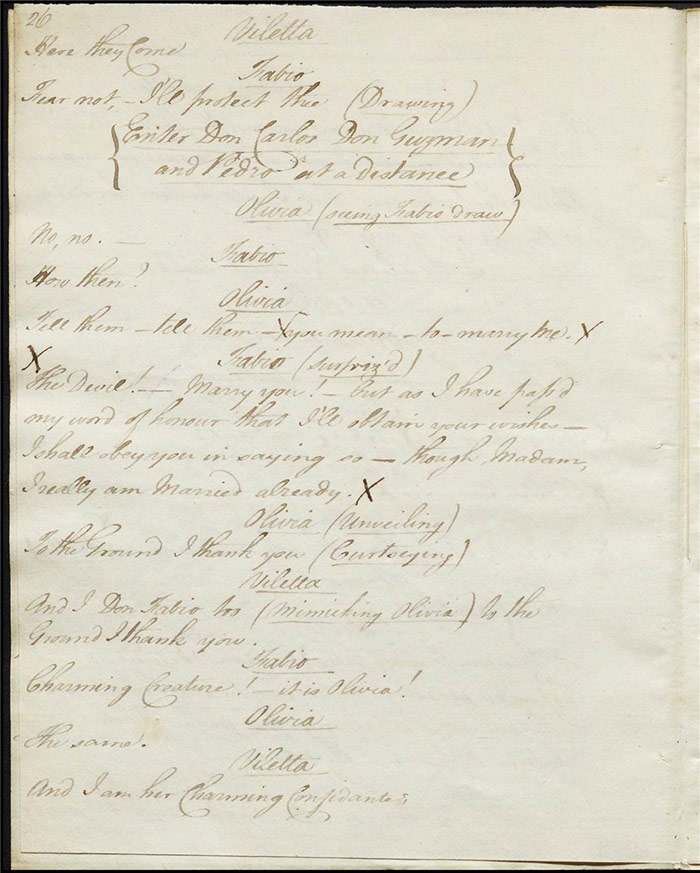 26
Viletta
Here they Come
Fabio
Fear not, - I'll protect thee (Drawing)
Enter Don Carlos Don Guzman
and Pedro at a distance
Olivia (seeing Fabio draw)
No, no. —
Fabio
How then?
Olivia
Tell them - tell them - X you mean - to - marry me. X
Fabio (surpriz'd)
X
The Divil! — Marry you! - But as I have pass'd
my word of honour that I'll obtain your wishes —
I shall obey you in saying so — though Madam,
I really am Married already. X
Olivia (Unveiling)
To the Ground I thank you (Curtseying)
Viletta
And I Don Fabio too (Mimicking Olivia) to the
Ground I thank you.
Fabio
Charming Creature! - it is Olivia!
Olivia
The same.
Viletta
And I am her Charming Confidante;